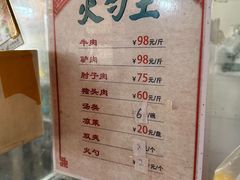 火勺王
牛肉 ¥98元/斤
驴肉 ¥98元/斤
肘子肉 ¥75元/斤
猪头肉 ¥60元/斤
汤类 6/碗
凉菜 ¥20元/盘
双夹 元/个
火勺 ¥2元/个